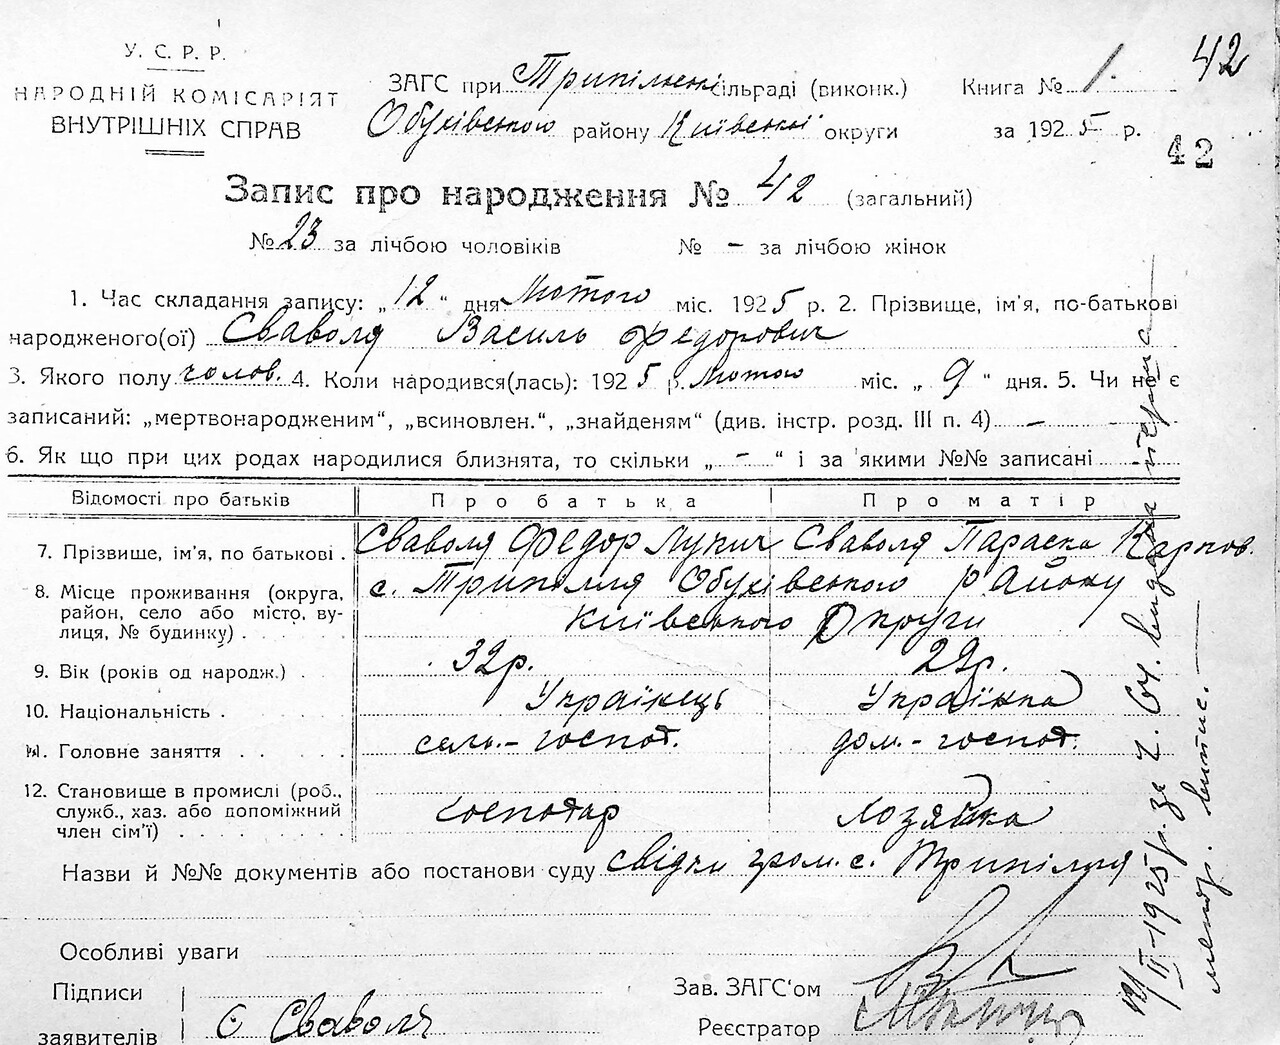 42
У. С. Р. Р.
НАРОДНІЙ КОМІСАРІЯТ
ВНУТРІШНІХ СПРАВ
ЗАГС при Трипільській сільраді (виконк.)
Обухівського району Київської округи
Книга № 1.
за 1925 р.
42
Запис про народження № 42 (загальний)
№ 23 за лічбою чоловіків № – за лічбою жінок
1. Час складання запису: „12“ дня Лютого міс. 1925 р. 2. Прізвище, ім'я, по-батькові
народженого(ої) Сваволя Василь Федорович
3. Якого полу чолов. 4. Коли народився(лась): 1925 р. Лютого міс. „9“ дня. 5. Чи не є
записаний: „мертвонародженим“, „всиновлен.“, „знайденям“ (див. інстр. розд. III п. 4) –
6. Як що при цих родах народилися близнята, то скільки „–“ і за якими №№ записані
Відомості про батьків Про батька Про матір
7. Прізвище, ім'я, по батькові . Сваволя Федор Лукич Сваволя Параска Карпов.
8. Місце проживання (округа, район, село або місто, вулиця, № будинку) . с. Трипілля Обухівського Району
Київського Округи
9. Вік (років од народж.) . 32р. 29р.
10. Національність . Українець Українка
11. Головне заняття . . . . . сель.-господ. дом.-господ.
12. Становище в промислі (роб.,
служб., хаз. або допоміжний
член сім'ї) . . . . . . . господар хозяйка
Назви й №№ документів або постанови суду свідки гром. с. Трипілля
Особливі уваги
Підписи
заявителів Є Сваволя
Зав. ЗАГС'ом
Реєстратор
II-1925 р. за ч. 64. видана
метр. випис.